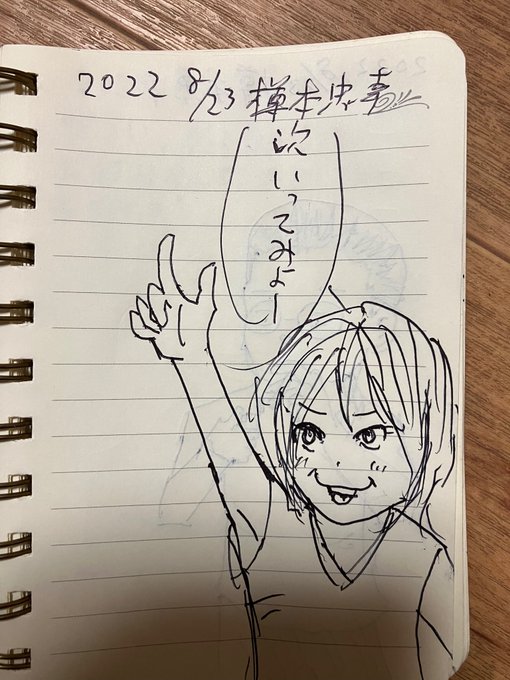 2022 8/23 樺本忠嘉
次いってみよー